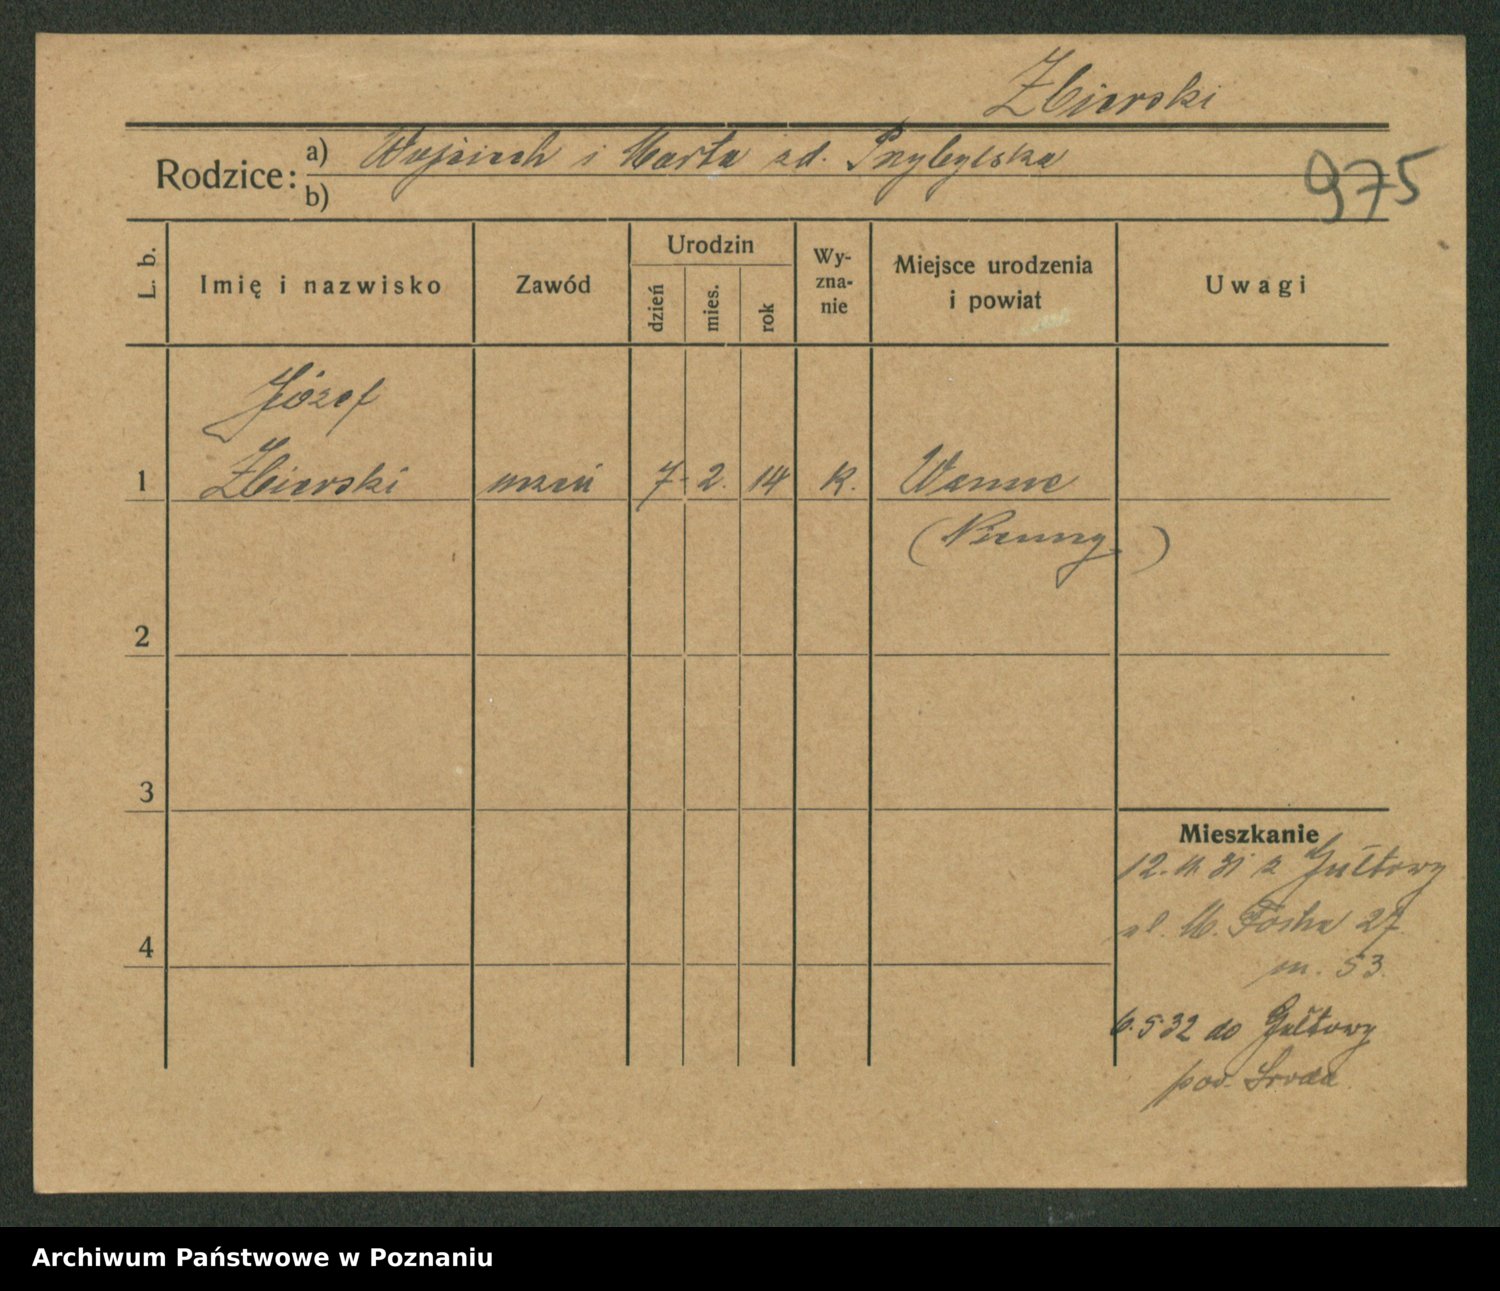 Zbierski
Rodzice: a) Wojciech i Marta zd. Przybylska
b)
975
L. b.
Imię i nazwisko
Zawód
Urodzin
dzień
mies.
rok
Wy-
zna-
nie
Miejsce urodzenia
i powiat
Uwagi
Józef
1 Zbierski uczeń 7. 2. 14 k. Wanne
(Niemcy)
2
3
4
Mieszkanie
12. 11. 31 z Gułtowy
ul. M. Focha 27
m. 53.
6.5.32 do Gułtowy
pow. Środa
Archiwum Państwowe w Poznaniu